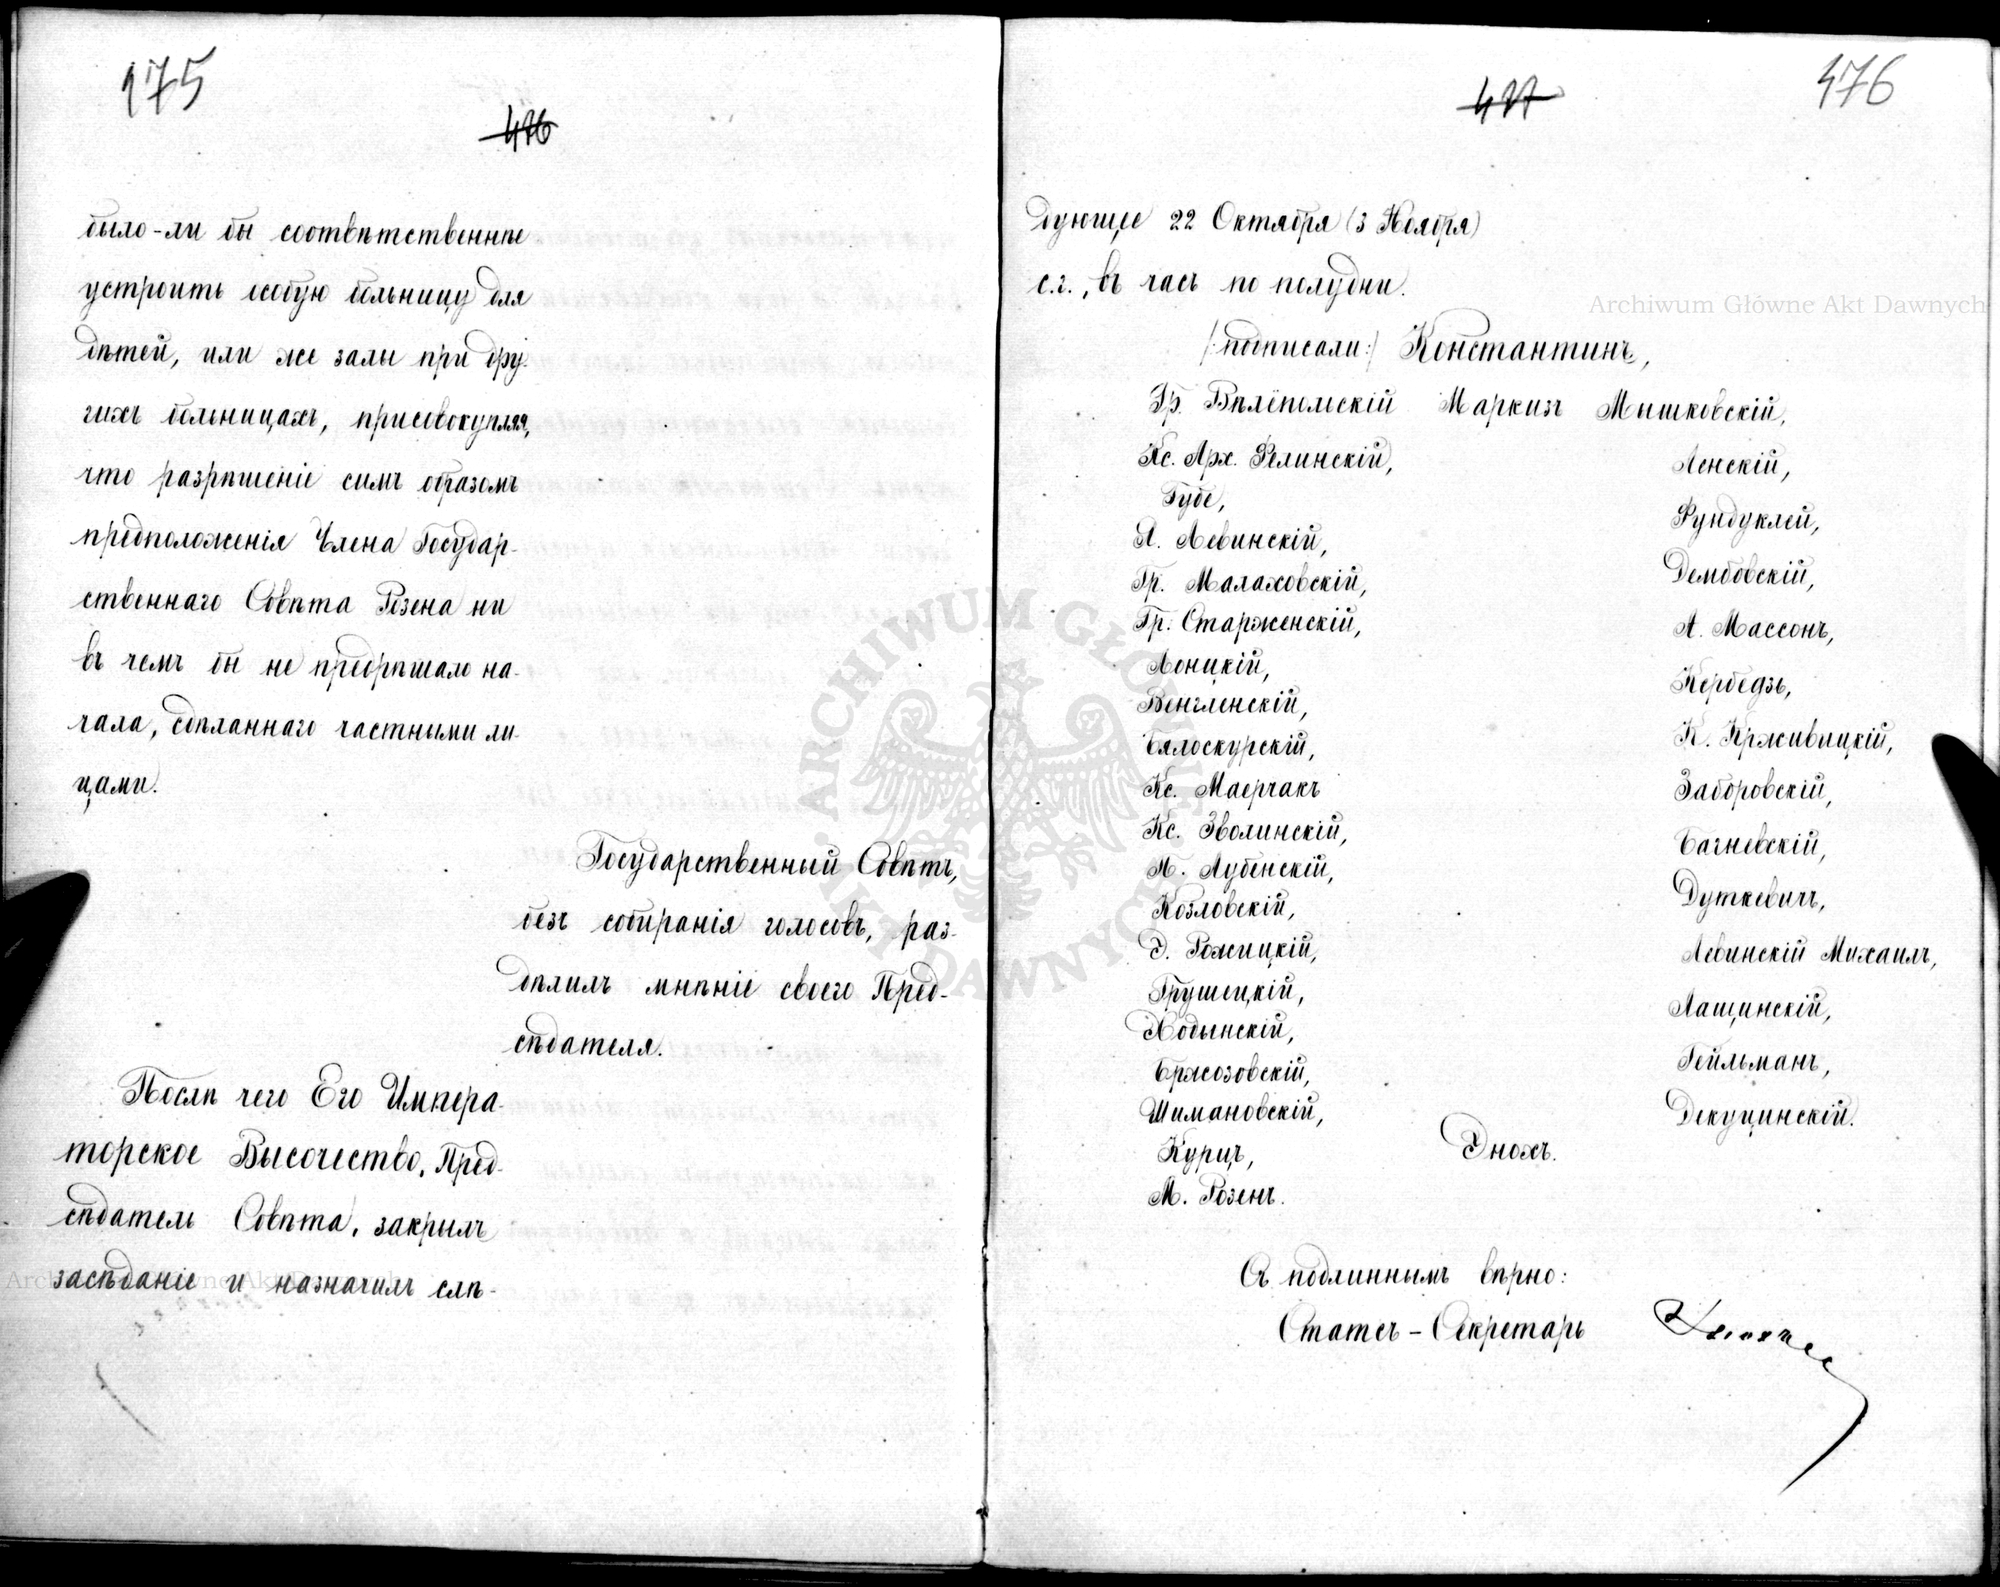 175
476
было-ли бы соотвѣтственнѣе
устроить особую больницу для
дѣтей, или же залы при дру-
гихъ больницахъ, присовокупляя,
что разрѣшеніе симъ образомъ
предположенія Члена Государ-
ственнаго Совѣта Розена ни
въ чемъ бы не предрѣшало на-
чала, сдѣланнаго частными ли-
цами.
Государственный Совѣтъ,
безъ собиранія голосовъ, раз-
дѣлилъ мнѣніе своего Пред-
сѣдателя.
Послѣ чего Его Импера-
торское Высочество, Пред-
сѣдатель Совѣта, закрылъ
засѣданіе и назначилъ слѣ-
476
477
дующее 22 Октября (3 Ноября)
с.г., въ часъ по полудни.
/:подписали:/ Константинъ,
Гр. Вѣлёпольскій Маркизъ Мышковскій,
Кс. Арх. Фелинскій,
Губе,
Я. Левинскій,
Гр. Малаховскій,
Гр. Старженскій,
Лонцкій,
Венгленскій,
Бялоскурскій,
Кс. Маерчакъ
Кс. Зволинскій,
Л. Лубенскій,
Козловскій,
Э. Рожицкій,
Грушецкій,
Ходынскій,
Бржозовскій,
Шимановскій,
Курцъ,
М. Розенъ.
Ленскій,
Фундуклей,
Дембовскій,
А. Массонъ,
Кербедзь,
К. Крживицкій,
Заборовскій,
Багневскій,
Дуткевичъ,
Левинскій Михаилъ,
Лащинскій,
Гейльманъ,
Декуцинскій.
Энохъ.
Съ подлиннымъ вѣрно:
Статсъ-Секретарь
Archiwum Główne Akt Dawnych
ARCHIWUM GŁÓWNE AKT DAWNYCH